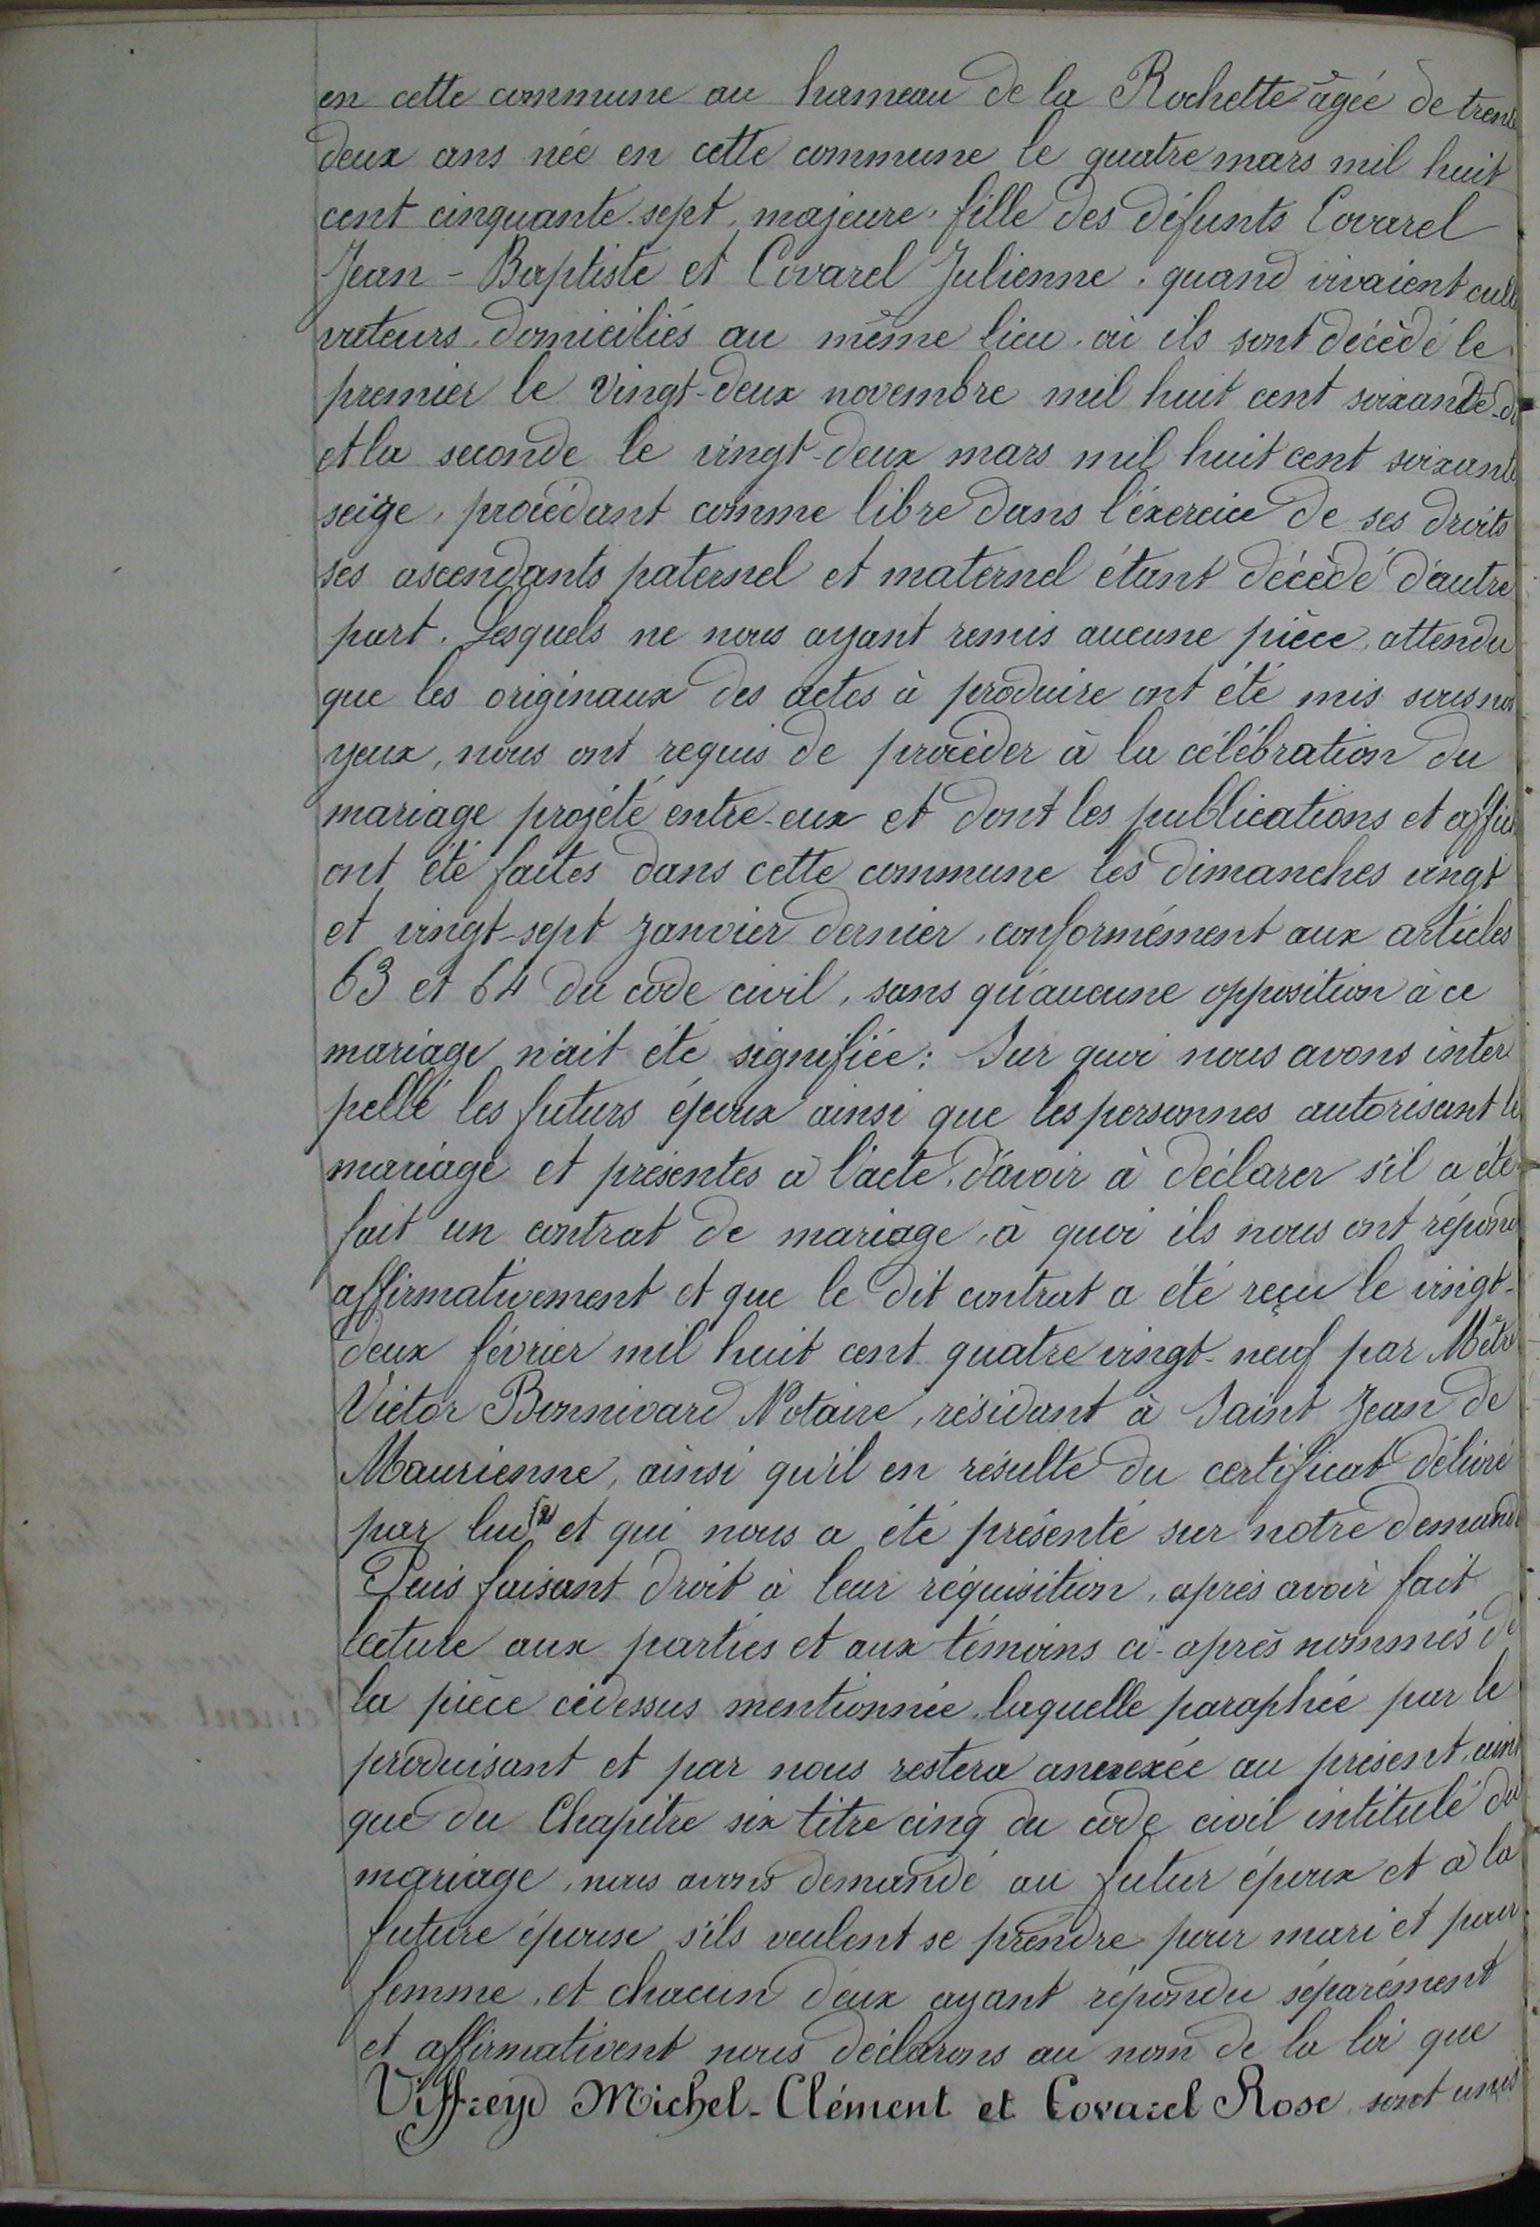 en cette commune au hameau de la Rochette âgée de trente
deux ans née en cette commune le quatre mars mil huit
cent cinquante-sept, majeure, fille des défunts Covarel
Jean-Baptiste et Covarel Julienne, quand vivaient culti
vateurs domiciliés au même lieu où ils sont décédé le
premier le vingt-deux novembre mil huit cent soixante-di
et la seconde le vingt-deux mars mil huit cent soixante
seize, procédant comme libre dans l'éxercice de ses droits
ses ascendants paternel et maternel étant décédé d'autre
part. Lesquels ne nous ayant remis aucune pièce, attendu
que les originaux des actes à produire ont été mis sous nos
yeux, nous ont requis de procéder à la célébration du
mariage projété entre-eux et dont les publications et affich
ont été faites dans cette commune les dimanches vingt
et vingt-sept Janvier dernier, conformément aux articles
63 et 64 du code civil, sans qu'aucune opposition à ce
mariage n'ait été signifiée: Sur quoi nous avons inter
pellé les futurs époux ainsi que les personnes autorisant le
mariage et présentes à l'acte, d'avoir à déclarer s'il a été
fait un contrat de mariage, à quoi ils nous ont répond
affirmativement et que le dit contrat a été reçu le vingt-
deux février mil huit cent quatre vingt-neuf par Mêtre
Victor Bonnivard Notaire, résidant à Saint Jean de
Maurienne, ainsi qu'il en résulte du certificat délivré
par lui et qui nous a été présenté sur notre demande
Puis faisant droit à leur réquisition, après avoir fait
lecture aux parties et aux témoins ci-après nommés de
la pièce cidessus mentionnée, laquelle paraphée par le
produisant et par nous restera annexée au présent, ainsi
que du Chapitre six titre cinq du code civil intitulé du
mariage, nous avons demandé au futur époux et à la
future épouse s'ils veulent se prendre pour mari et pour
femme, et chacun d'eux ayant répondu séparément
et affirmativent nous déclarons au nom de la loi que
Viffreyd Michel-Clément et Covarel Rose sont unis